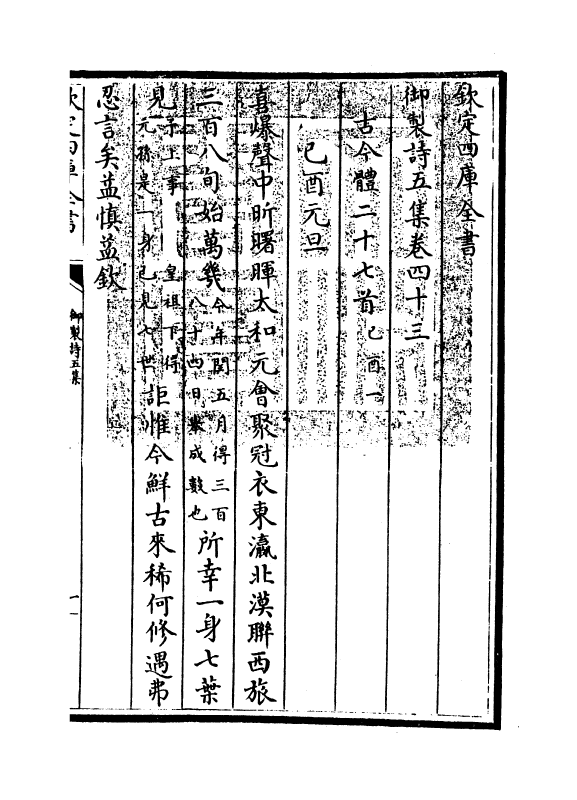 欽定四庫全書
御製詩五集卷四十三
古今體二十七首己酉一
己酉元旦
喜爆聲中昕曙暉太和元會聚冠衣東瀛北漠聯西旅
三百八旬始萬幾今年閏五月得三百八十四日舉成數也所幸一身七葉
見予上事皇祖下得元孫是一身已見七世詎惟今鮮古來稀何修遇弗
忍言矣益慎益欽
欽定四庫全書
御製詩五集
一